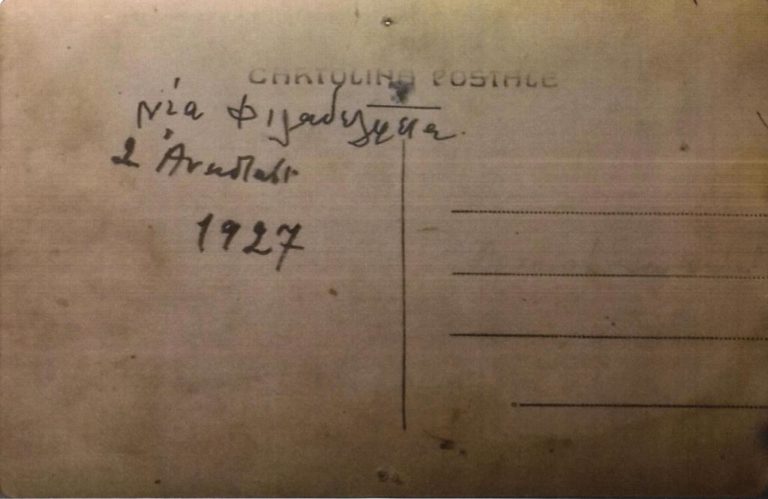 CARTOLINA POSTALE
Νέα Φιλαδέλφεια.
2
1927